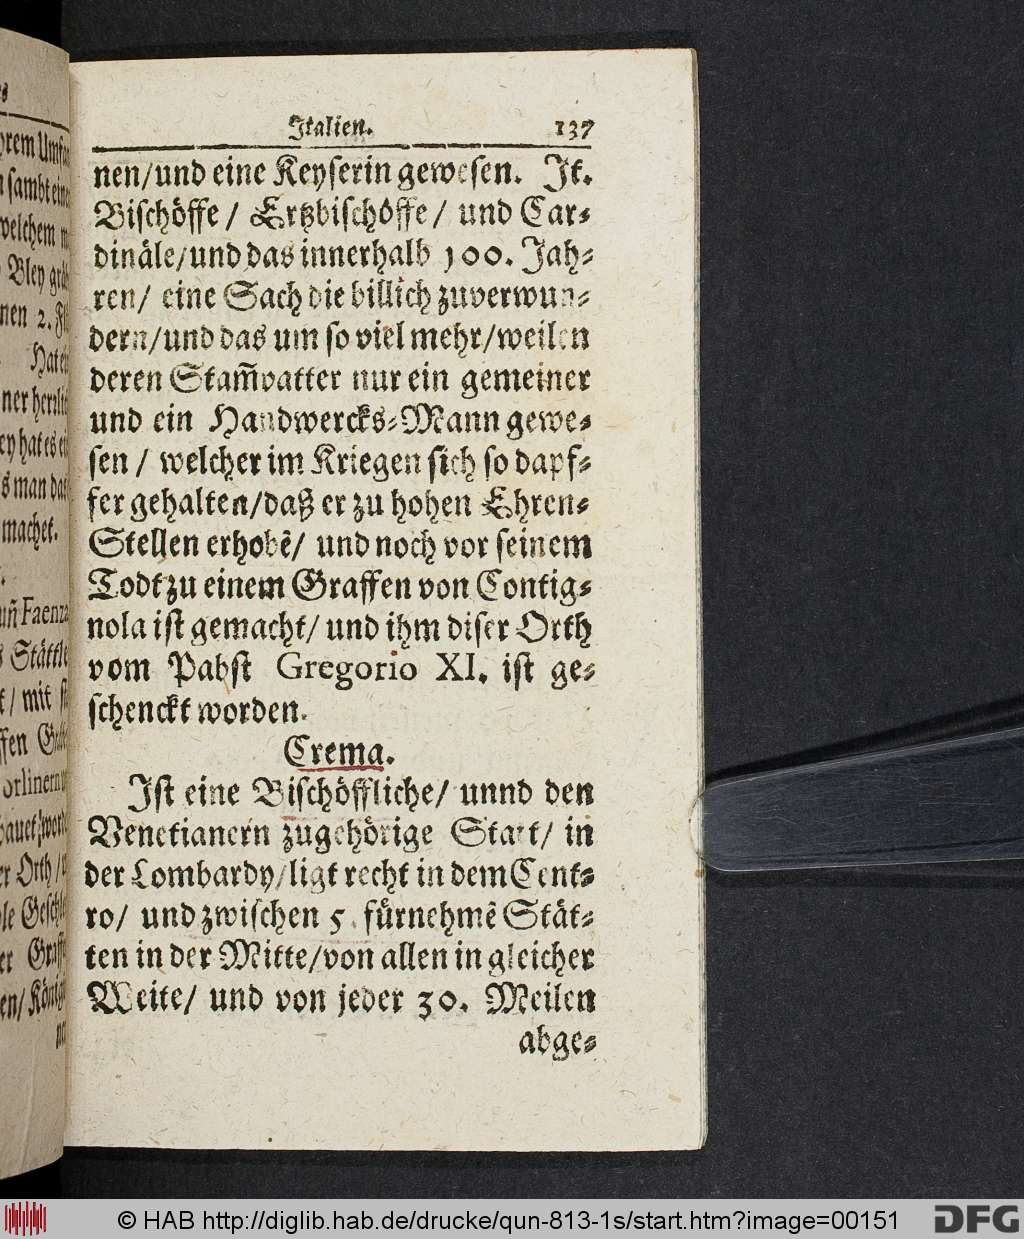 Italien. 137
nen/und eine Keyserin gewesen. It.
Bischöffe / Ertzbischöffe / und Car-
dinäle/und das innerhalb 100. Jah-
ren/ eine Sach die billich zuverwun-
dern/und das um so viel mehr/weilen
deren Stam̃vatter nur ein gemeiner
und ein Handwercks-Mann gewe-
sen / welcher im Kriegen sich so dapf-
fer gehalten/daß er zu hohen Ehren-
Stellen erhobē/ und noch vor seinem
Todt zu einem Graffen von Contig-
nola ist gemacht/ und ihm diser Orth
vom Pabst Gregorio XI. ist ge-
schenckt worden.
Crema.
Ist eine Bischöffliche/ unnd den
Venetianern zugehörige Statt/ in
der Lombardy/ligt recht in dem Cent-
ro/ und zwischen 5. fürnehmē Stät-
ten in der Mitte/von allen in gleicher
Weite/ und von jeder 30. Meilen
abge-
sambt eine
welchem
Bley
nen 2.
man das
machet.
uñ Faenza
Stättle
/ mit
Orth /
© HAB http://diglib.hab.de/drucke/qun-813-1s/start.htm?image=00151
DFG